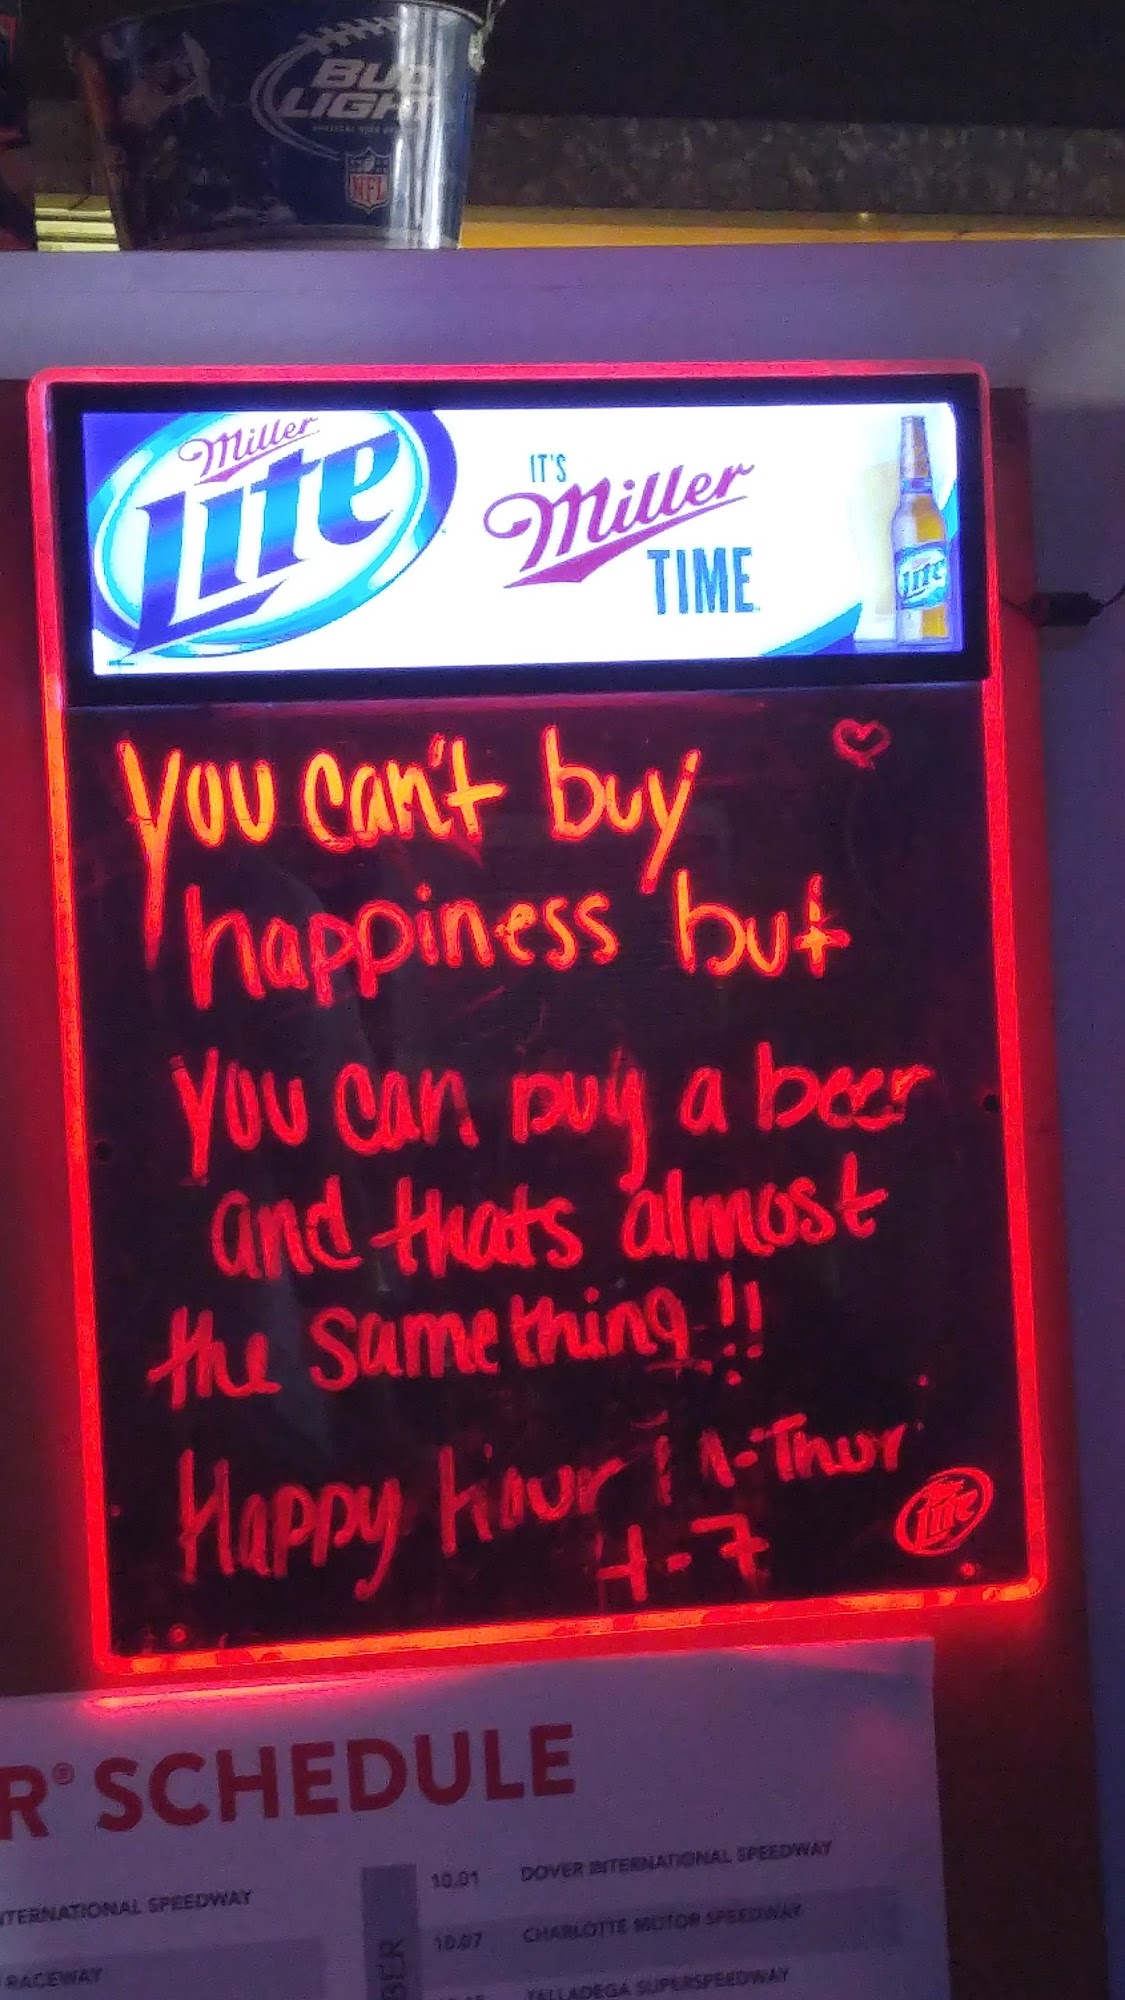 BUD
LIGHT
NFL
Miller
Lite
IT'S
Miller
TIME
Lite
you can't buy
happiness but
you can buy a beer
and thats almost
the same thing!!
Happy Hour
-Thur
- 7
Lite
R® SCHEDULE
INTERNATIONAL SPEEDWAY
RACEWAY
BER
10.01 DOVER INTERNATIONAL SPEEDWAY
10.07 CHARLOTTE MOTOR SPEEDWAY
TALLADEGA SUPERSPEEDWAY